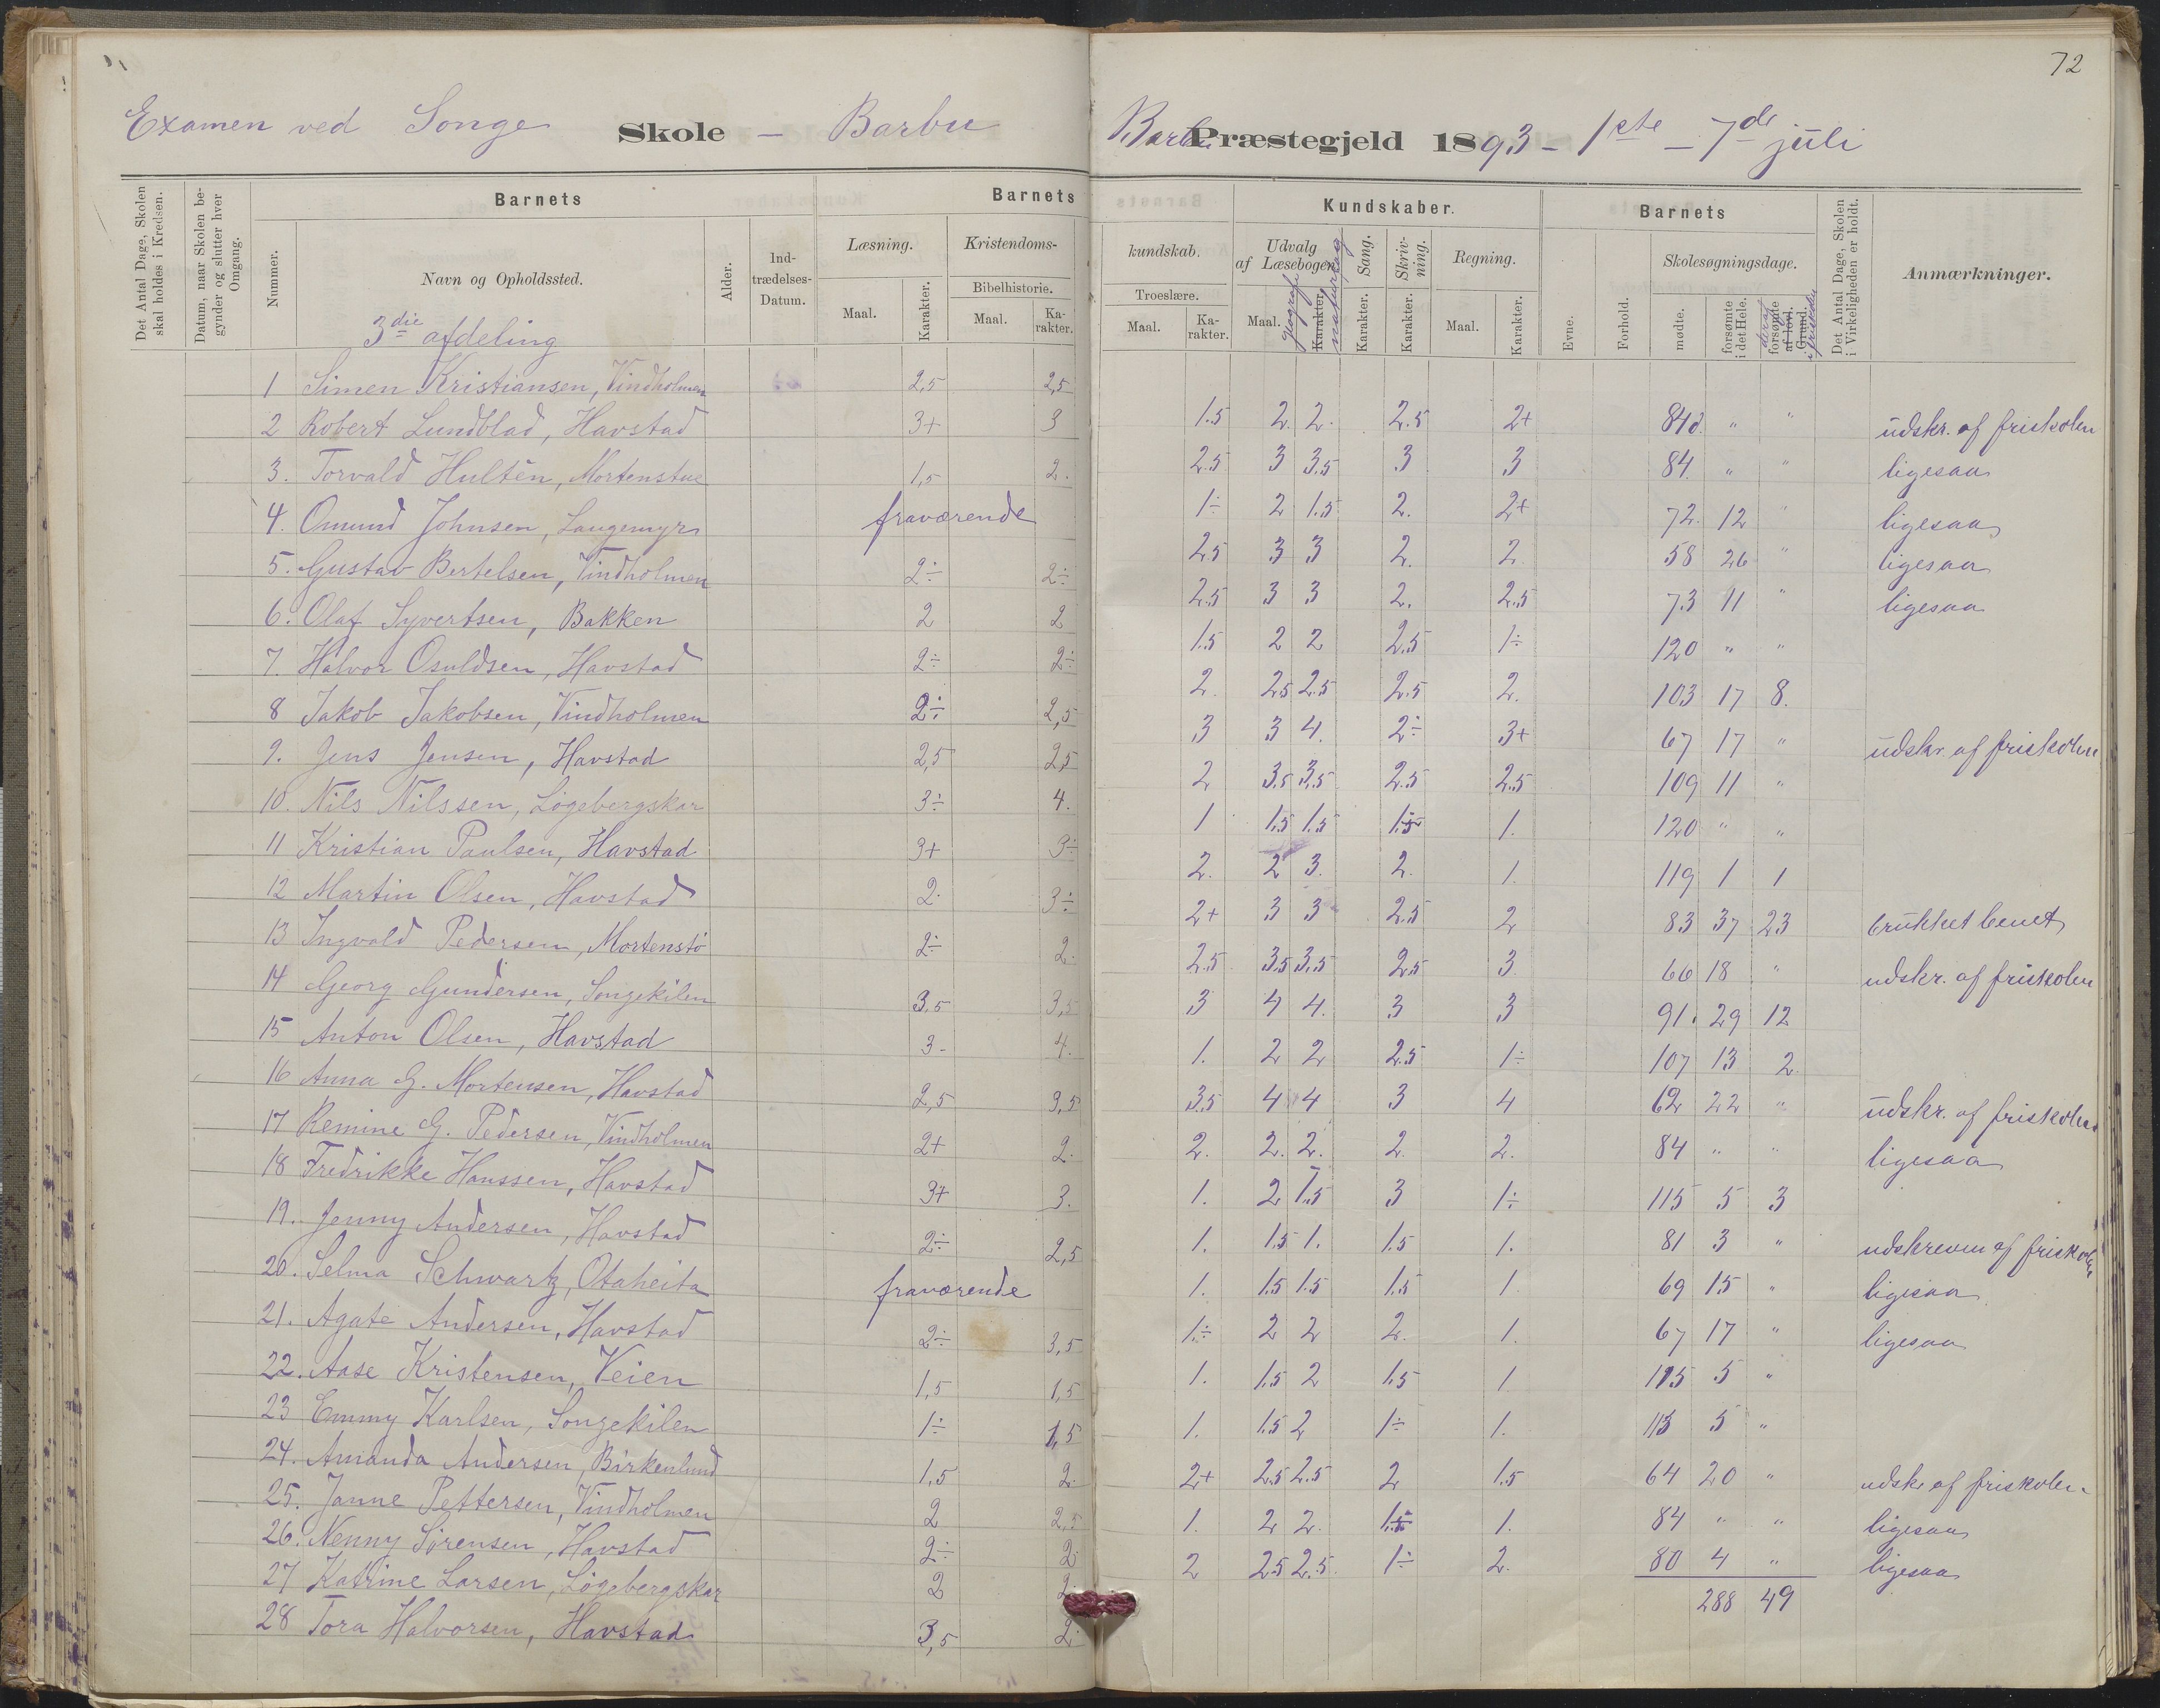 72
Examen ved Songe Skole – Barbu
Barbu Præstegjeld 1893 – 1ste – 7de juli
Det Antal Dage, Skolen skal holdes i Kredsen.
Datum, naar Skolen begynder og slutter hver Omgang.
Barnets
Nummer.
Navn og Opholdssted.
Alder.
Indtrædelses-Datum.
Barnets
Læsning.
Maal.
Karakter.
Kristendoms-
Bibelhistorie.
Maal.
Karakter.
3die afdeling
1 Simen Kristiansen, Vindholmen 2,5 2,5
2 Robert Lundblad, Havstad 3+ 3
3. Torvald Hultén, Mortenstue 1,5 2.
4. Omund Johnsen, Langemyr fraværende
5. Gustav Bertelsen, Vindholmen 2÷ 2÷
6. Olaf Syvertsen, Bakken 2 2
7. Halvor Osuldsen, Havstad 2÷ 2÷
8 Jakob Jakobsen, Vindholmen 2÷ 2,5
9. Jens Jensen, Havstad 2,5 2,5
10. Nils Nilssen, Lögebergskar 3÷ 4.
11 Kristian Paulsen, Havstad 3+ 3÷
12 Martin Olsen, Havstad 2. 3÷
13 Ingvald Pedersen, Mortenstö 2÷ 2.
14 Georg Gundersen, Songekilen 3,5 3,5
15 Anton Olsen, Havstad 3- 4.
16 Anna G. Mortensen, Havstad 2,5 3,5
17 Remine G. Pedersen, Vindholmen 2+ 2.
18 Fredrikke Hanssen, Havstad 3+ 3.
19. Jenny Andersen, Havstad 2÷ 2,5
20. Selma Schwartz, Otaheita fraværende
21. Agate Andersen, Havstad 2÷ 3,5
22. Aase Kristensen, Veien 1,5 1,5
23 Emmy Karlsen, Songekilen 1÷ 1,5
24. Amanda Andersen, Birkenlund 1,5 2.
25. Janne Pettersen, Vindholmen 2 2,5
26. Nenny Sørensen, Havstad 2÷ 2.
27 Katrine Larsen, Lögebergskar 2 2.
28 Tora Halvorsen, Havstad 3,5 2.
Kundskaber.
kundskab.
Troeslære.
Maal.
Karakter.
Udvalg af Læsebogen.
Maal.
geografi
Karakter.
naturfag
Sang.
Karakter.
Skrivning.
Karakter.
Regning.
Maal.
Karakter.
Barnets
Evne.
Forhold.
Skolesøgningsdage.
mødte.
forsømte i det Hele.
deraf
forsømte af lovl. Grund.
i friskolen
Det Antal Dage, Skolen i Virkeligheden er holdt.
Anmærkninger.
1.5 2. 2. 2.5 2+ 84d. " " udskr. af friskolen
2.5 3 3.5 3 3 84. " " ligesaa
1÷ 2 1.5 2. 2+ 72. 12 " ligesaa
2.5 3 3 2. 2 58 26 " ligesaa
2.5 3 3 2. 2.5 73 11 " ligesaa
1.5 2 2 2.5 1÷ 120 " "
2. 2.5 2.5 2.5 2. 103 17 8.
3 3 4. 2÷ 3+ 67 17 " udskr af friskolen
2 3.5 3.5 2.5 2.5 109 11 "
1 1.5 1.5 1.5 1. 120 " "
2. 2 3. 2. 1. 119 1 1
2+ 3 3 2.5 2 83 37 23 brukket benet
2.5 3.5 3.5 2.5 3. 66 18 " udskr. af friskolen
3 4 4. 3 3 91. 29 12
1. 2 2 2.5 1÷ 107 13 2.
3.5 4 4 3 4 62 22 " udskr. af friskolen
2. 2. 2. 2. 2. 84 " " ligesaa
1. 2 1.5 3 1÷ 115 5 3
1. 1.5 1. 1.5 1. 81 3 " udskreven af friskolen
1. 1.5 1.5 1.5 1 69 15 " ligesaa
1÷ 2 2 2. 1. 67 17 " ligesaa
1. 1.5 2 1.5 1 115 5 "
1. 1.5 2 1÷ 1. 115 5 "
2+ 2.5 2.5 2 1.5 64 20 " udskr af friskolen
1. 2 2. 1÷ 1. 84 " " ligesaa
2 2.5 2.5 1÷ 2. 80 4 " ligesaa
288 49